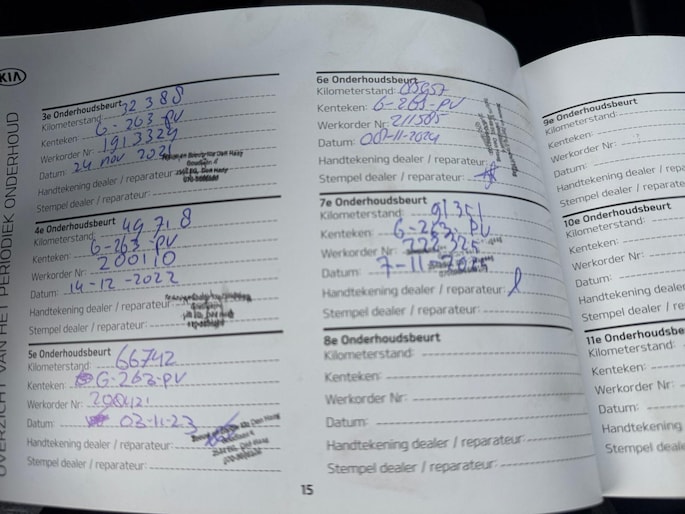 KIA
OVERZICHT VAN HET PERIODIEK ONDERHOUD
3e Onderhoudsbeurt
Kilometerstand: 32388
Kenteken: G-263-PV
Werkorder Nr: 1913324
Datum: 24 nov 2021
Handtekening dealer / reparateur:
Stempel dealer / reparateur:
4e Onderhoudsbeurt
Kilometerstand: 49718
Kenteken: G-263-PV
Werkorder Nr: 200110
Datum: 14-12-2022
Handtekening dealer / reparateur:
Stempel dealer / reparateur:
5e Onderhoudsbeurt
Kilometerstand: 66742
Kenteken: G-263-PV
Werkorder Nr:
Datum: 03-11-23
Handtekening dealer / reparateur:
Stempel dealer / reparateur:
6e Onderhoudsbeurt
Kilometerstand:
Kenteken: G-263-PV
Werkorder Nr: 211585
Datum: 08-11-2024
Handtekening dealer / reparateur:
Stempel dealer / reparateur:
7e Onderhoudsbeurt
Kilometerstand: 91351
Kenteken: G-263-PV
Werkorder Nr: 222325
Datum: 7-11-2025
Handtekening dealer / reparateur:
Stempel dealer / reparateur:
8e Onderhoudsbeurt
Kilometerstand:
Kenteken:
Werkorder Nr:
Datum:
Handtekening dealer / reparateur:
Stempel dealer / reparateur:
15
9e Onderhoudsbeurt
Kilometerstand:
Kenteken:
Werkorder Nr:
Datum:
Handtekening dealer
Stempel dealer / repara
10e Onderhoudsbeurt
Kilometerstand:
Kenteken:
Werkorder Nr:
Datum:
Handtekening dealer /
Stempel dealer / repara
11e Onderhoudsbe
Kilometerstand:
Kenteken:
Werkorder Nr:
Datum:
Handtekening
Stempel dealer